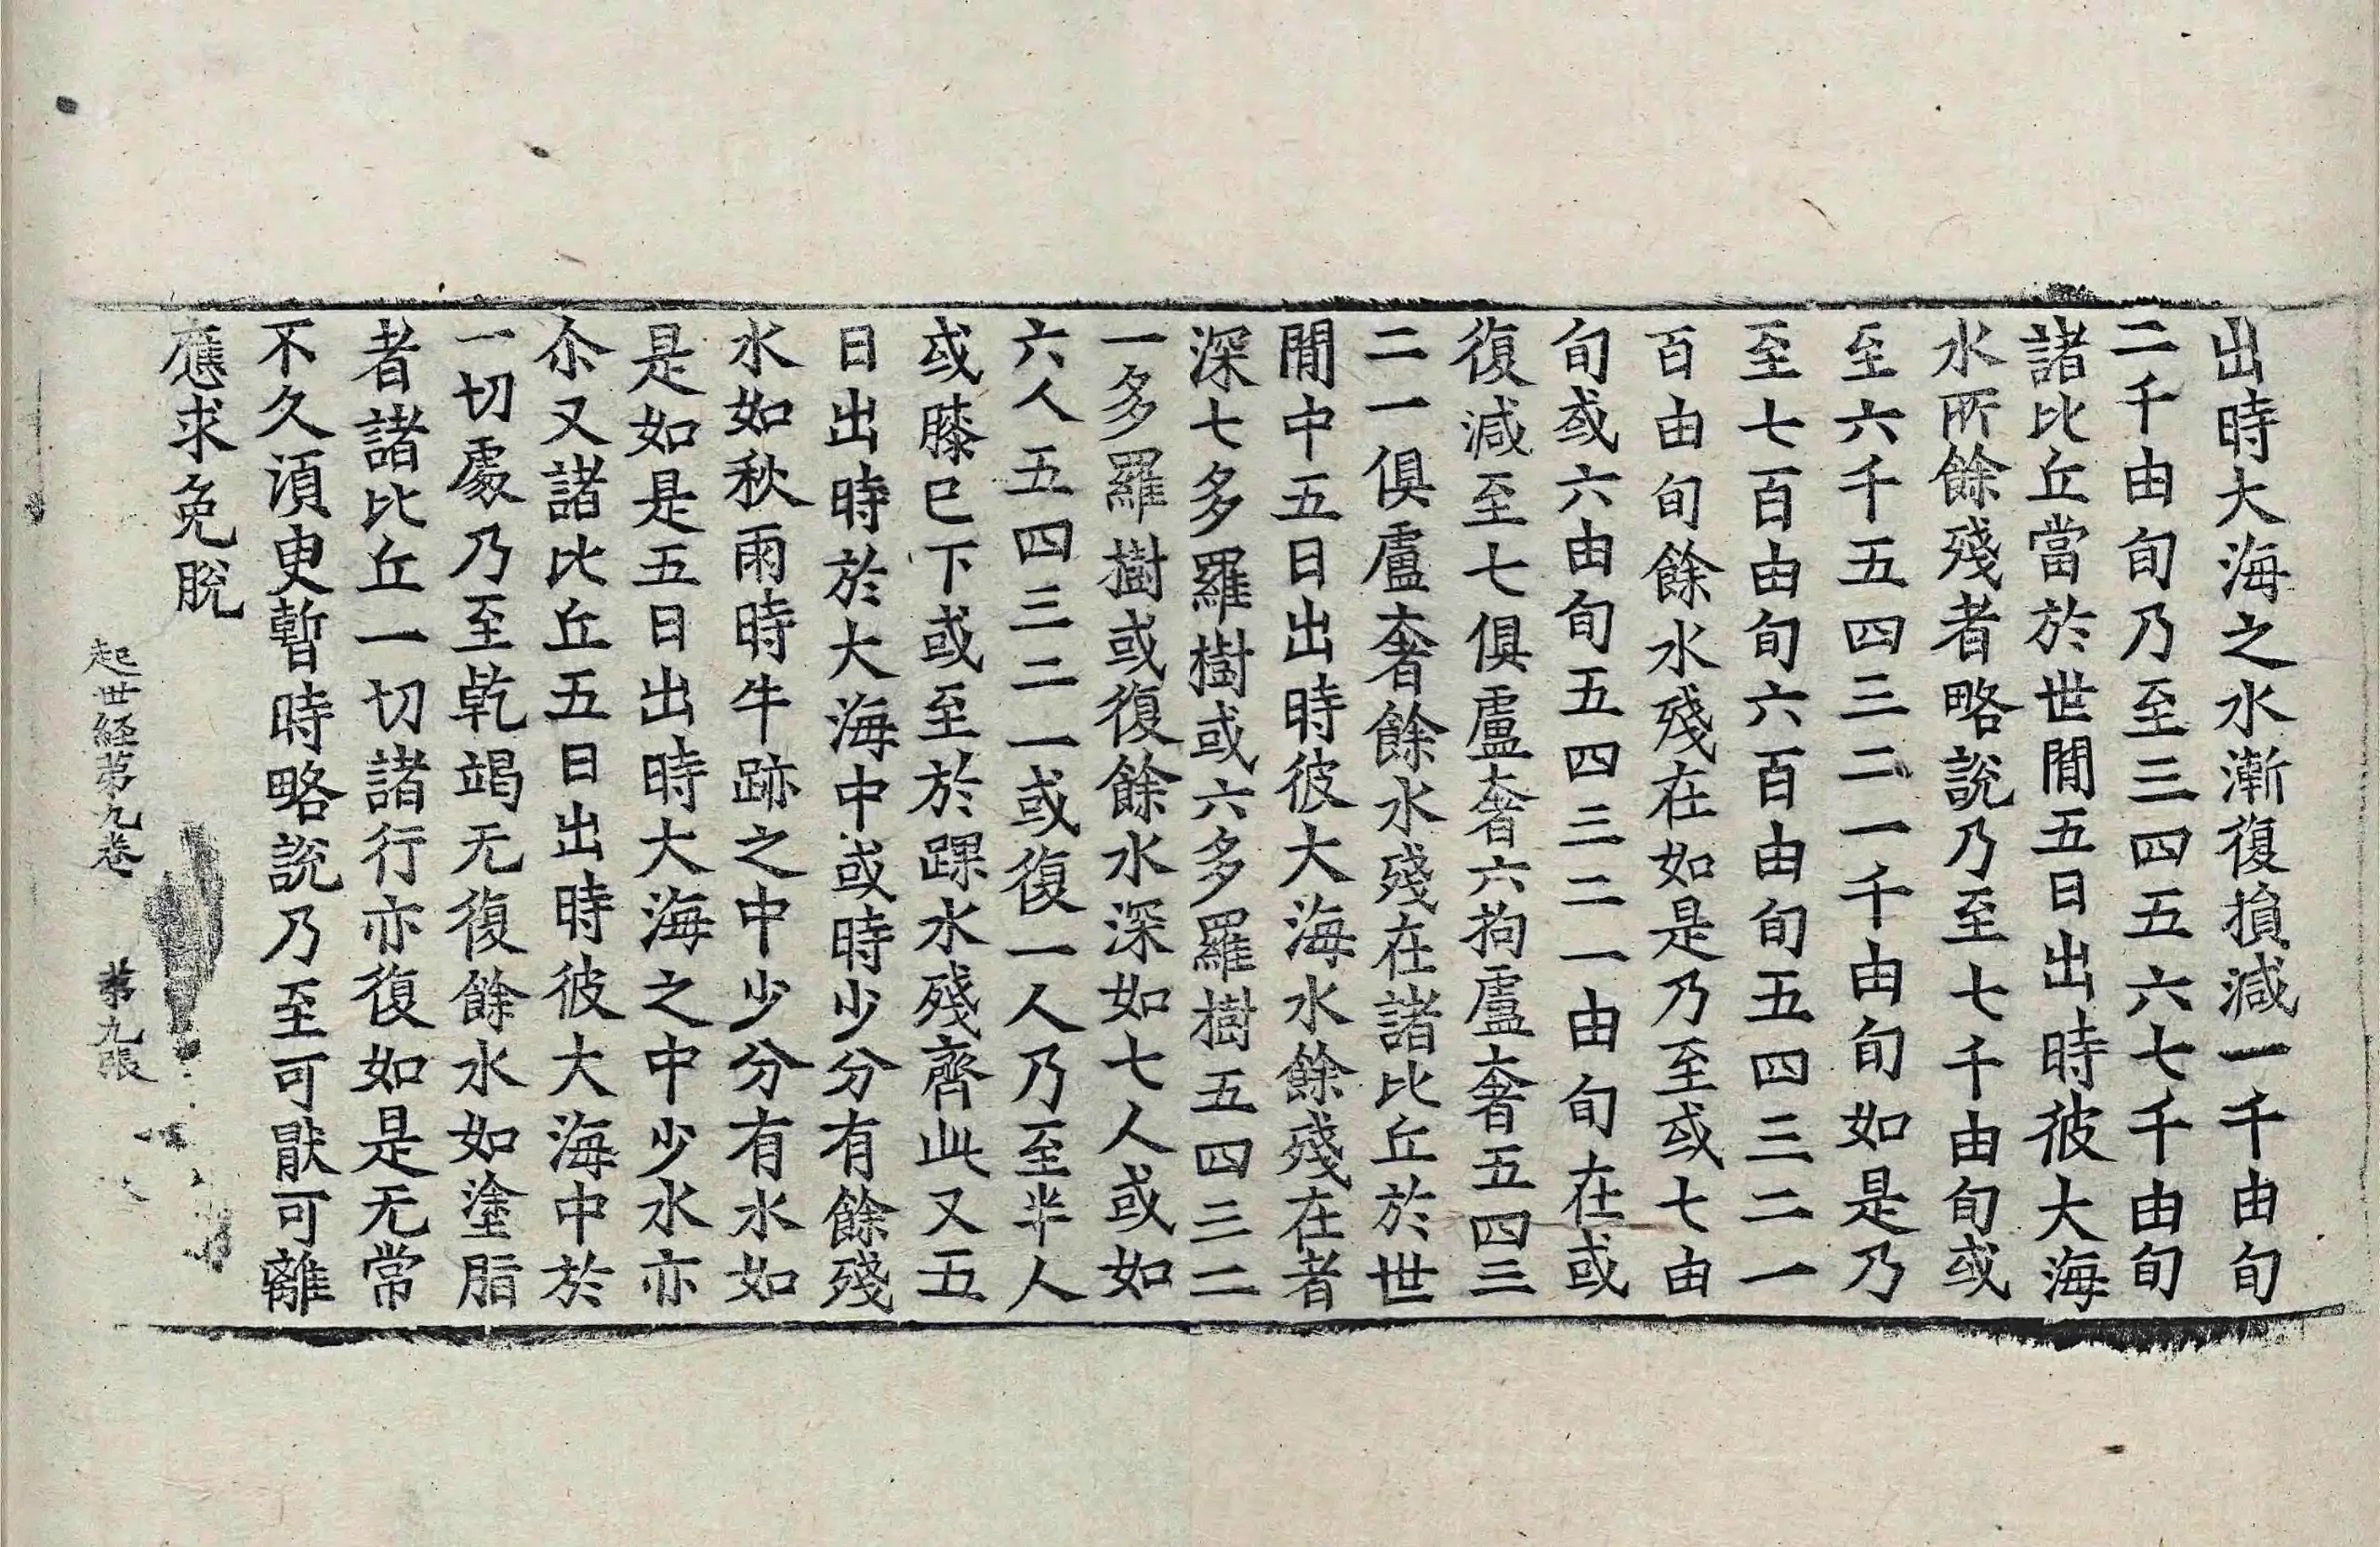 出時大海之水漸復損減一千由旬
二千由旬乃至三四五六七千由旬
諸比丘當於世閒五日出時彼大海
水所餘殘者略說乃至七千由旬或
至六千五四三二一千由旬如是乃
至七百由旬六百由旬五四三二一
百由旬餘水殘在如是乃至或七由
旬或六由旬五四三二一由旬在或
復減至七俱盧奢六拘盧奢五四三
二一俱盧奢餘水殘在諸比丘於世
閒中五日出時彼大海水餘殘在者
深七多羅樹或六多羅樹五四三二
一多羅樹或復餘水深如七人或如
六人五四三二一或復一人乃至半人
或膝已下或至於踝水殘齊此又五
日出時於大海中或時少分有餘殘
水如秋雨時牛跡之中少分有水如
是如是五日出時大海之中少水亦
尒又諸比丘五日出時彼大海中於
一切處乃至乾竭无復餘水如塗脂
者諸比丘一切諸行亦復如是无常
不久湏臾暫時略說乃至可猒可離
應求免脫
起世経苐九卷 苐九張